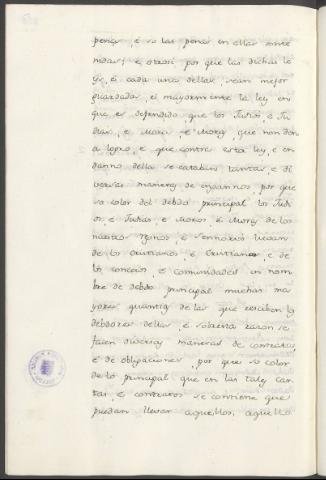 penas, é so las penas en ellas conte
nidas; é otrosi por que las dichas le
ys, é cada una dellas, sean mejor
guardadas, é mayormente la ley en
que es defendido que los Judios, é Ju
dias, é Moros, é Moras, que non den
a logro, é que contra esta ley, é en
danno della se catavan tantas, é di
versas maneras de engannos, por que
so color del debdo principal los Judi
os, é Judias, é Moros, é Moras de los
nuestros Rgnos, é sennorios llevan
de los Cristianos, é Cristianas, é de
los concejos, é comunidades en nom
bre de debdo principal muchas ma
yores quantias de las que resciben los
debdores dellas, é sobresta razon se
facen diversas maneras de contratos,
é de obligaciones, por que so color
de lo principal que en las tales car
tas, é contratos se contiene que
puedan llevar aquellos, aquello